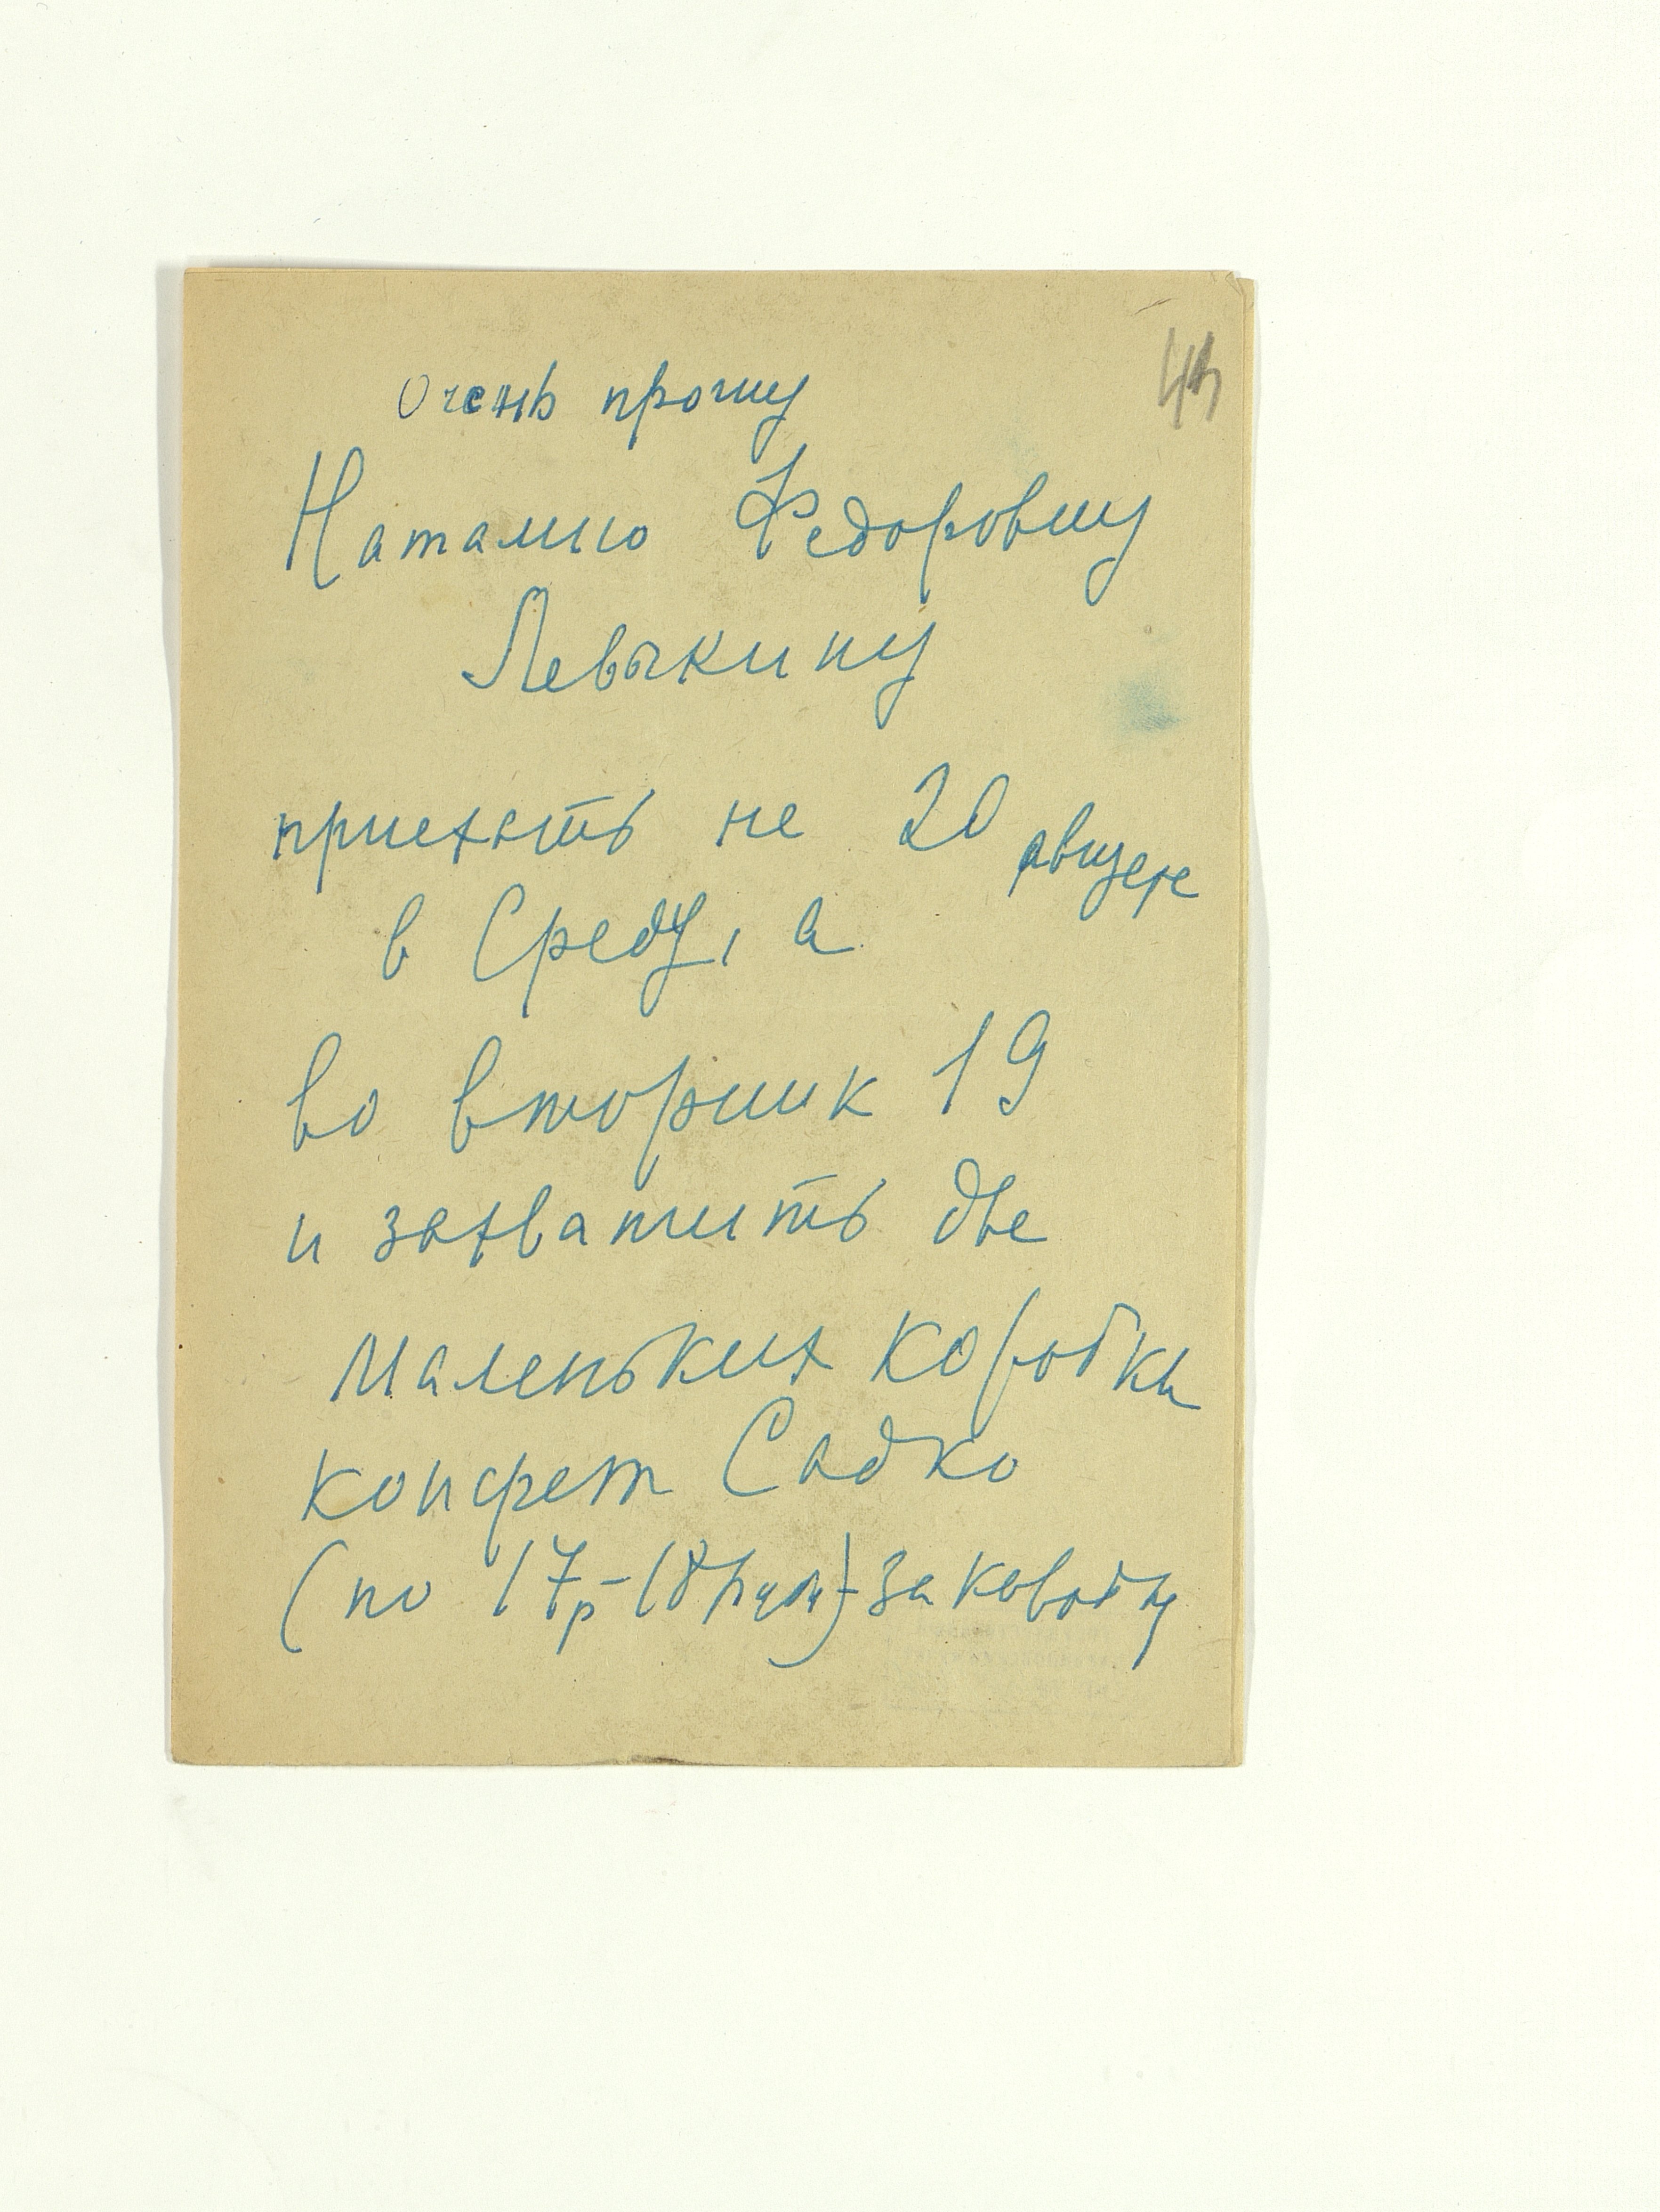 Очень прошу
Наталию Федоровну
Левыкину
приехать не 20 августа
в Среду, а
во вторник 19
и захватить две
маленьких коробки
конфет Садко
(по 17р-18 руб)-за коробку